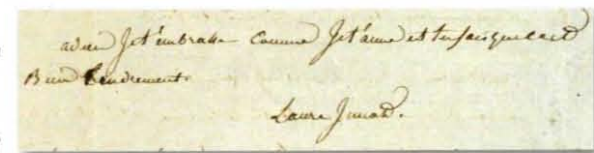 adieu Je t'embrasse Comme Je t'aime et tu sais que c'est
Bien tendrement.
Laure Junot.